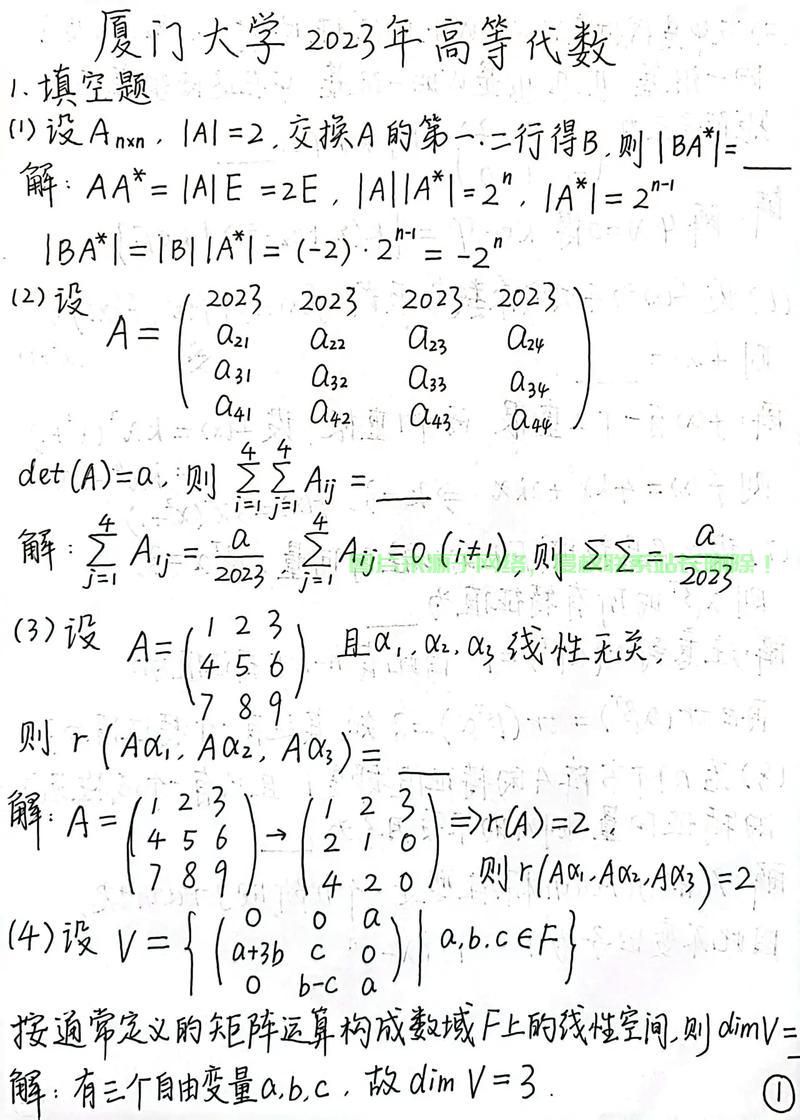 厦门大学 2023年高等代数
1. 填空题
(1) 设 Aₙₓₙ, |A|=2, 交换A的第一、二行得B, 则 |BA*|=___
解: AA* = |A|E = 2E, |A||A*| = 2ⁿ, |A*| = 2ⁿ⁻¹
|BA*| = |B||A*| = (-2)·2ⁿ⁻¹ = -2ⁿ
(2) 设
2023 2023 2023 2023
A = a₂₁ a₂₂ a₂₃ a₂₄
a₃₁ a₃₂ a₃₃ a₃₄
a₄₁ a₄₂ a₄₃ a₄₄
det(A)=a, 则 ∑_{i=1}^{4} ∑_{j=1}^{4} Aᵢⱼ = ___
解: ∑_{j=1}^{4} A₁ⱼ = a/2023 ∑_{j=1}^{4} Aᵢⱼ = 0 (i≠1), 则 ∑∑ = a/2023
(3) 设 A = (1 2 3
4 5 6
7 8 9) 且 α₁, α₂, α₃ 线性无关,
则 r(Aα₁, Aα₂, Aα₃) = ___
解: A = (1 2 3 → (1 2 3 ⇒ r(A)=2,
4 5 6 2 1 0
7 8 9) 4 2 0) 则 r(Aα₁, Aα₂, Aα₃) = 2
(4) 设 V = { (0 0 a
a+3b c 0
0 b-c a) | a, b, c ∈ F }
按通常定义的矩阵运算构成数域F上的线性空间, 则 dimV=_
解: 有三个自由变量 a, b, c, 故 dim V = 3.
①